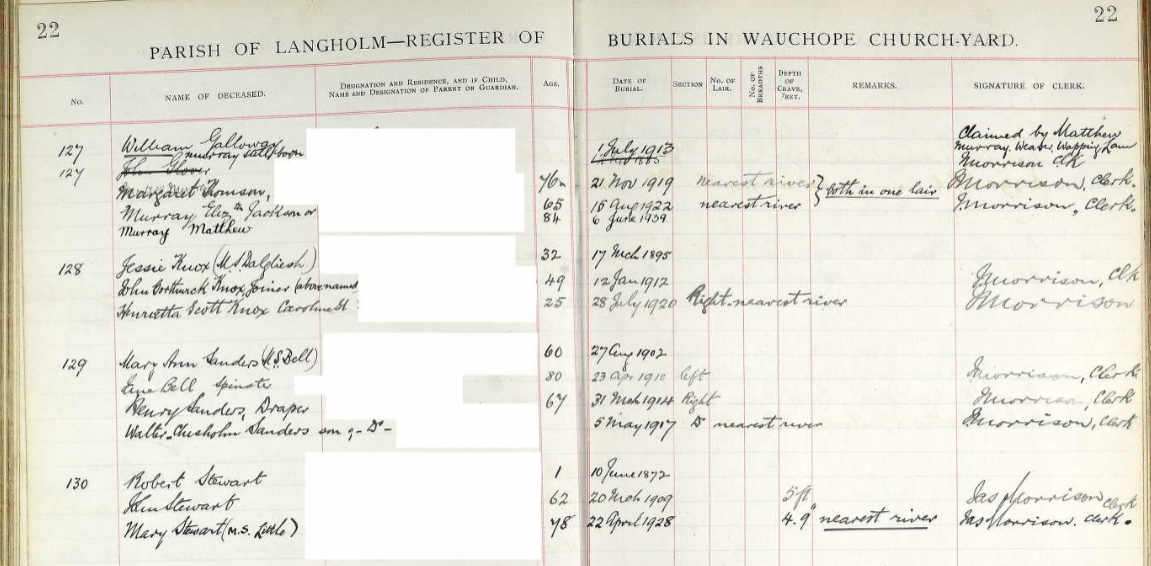 22 22
PARISH OF LANGHOLM—REGISTER OF BURIALS IN WAUCHOPE CHURCH-YARD.
No. NAME OF DECEASED. DESIGNATION AND RESIDENCE, AND IF CHILD, NAME AND DESIGNATION OF PARENT OR GUARDIAN. AGE. DATE OF BURIAL. SECTION No. OF LAIR. No. OF BREADTHS DEPTH OF GRAVE, FEET. REMARKS. SIGNATURE OF CLERK.
127 William Galloway 1 July 1913 Claimed by Matthew
Murray Murray, Weaver, Wapping Lane
127 John Glover Morrison Clk
Margaret Thomson, 76 21 Nov 1919 nearest river } both in one lair Morrison, Clerk.
Murray Elizth Jackson or 65 16 Aug 1922 nearest river Morrison, Clerk.
Murray Matthew 84 6 June 1939
128 Jessie Knox (M.S. Dalgliesh) 32 17 Mch 1895
John Borthwick Knox, Joiner (above named 49 12 Jan 1912 Morrison, Clk
Henrietta Scott Knox Caroline St 25 28 July 1920 Right-nearest river Morrison
129 Mary Ann Sanders (M.S. Bell) 60 27 Aug 1902
Bell Spinster 80 23 Apr 1910 left Morrison, Clerk
Henry Sanders, Draper 67 31 Mch 1914 Right Morrison, Clerk
Walter Chisholm Sanders son of - Do - 5 May 1917 Do nearest river Morrison, Clerk
130 Robert Stewart 1 10 June 1872
John Stewart 62 20 Mch 1909 5 ft Jas Morrison Clerk
Mary Stewart (M.S. Little) 78 22 April 1928 4.9" nearest river Jas Morrison. Clerk.